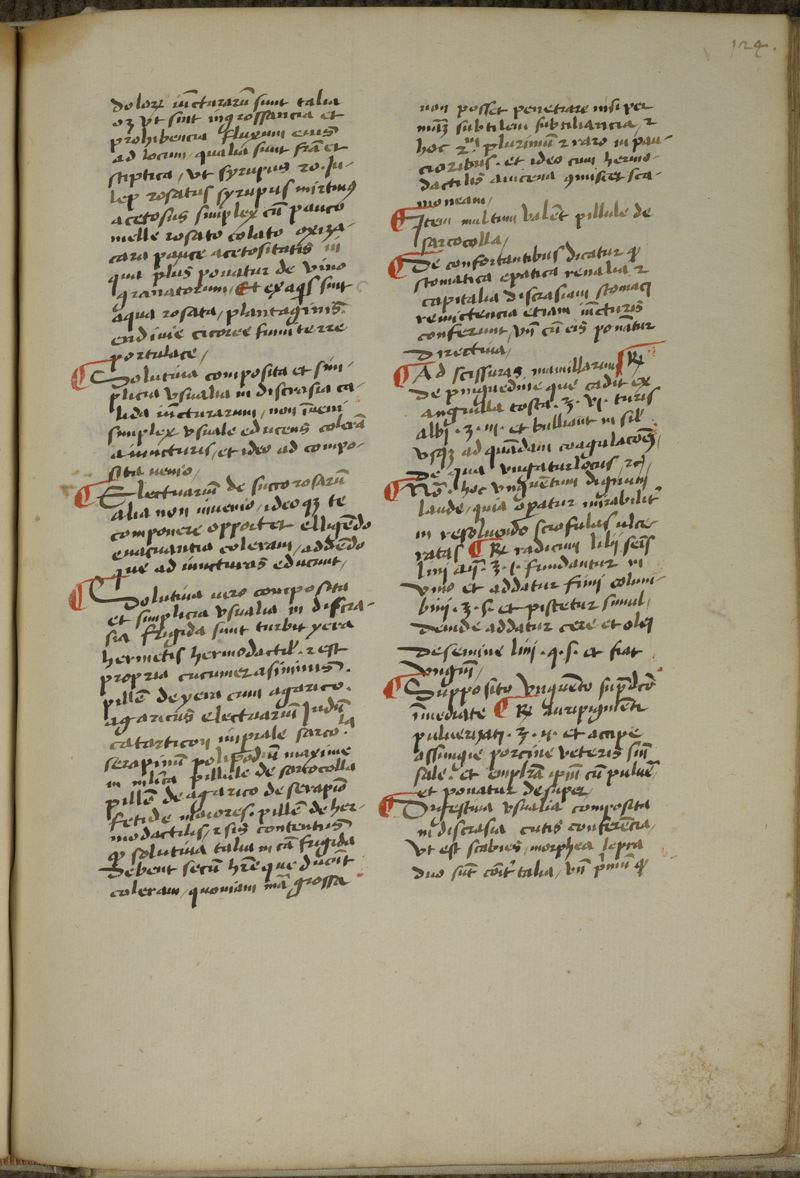 124.
dolorꝝ iūcturarū sunt talia
oꝫ vt sint ingrossancia et
prohibencia fluxum eius
ad locum, qualia sunt frā et
stiptica, vt syrupus ro. Ju-
lep rosatus syrupus mirtinꝰ
acetosus simplex cū pauco
melle rosato colato oxiza-
cara pauce acetositatis in
qua plus ponatur de vino
granatorum, Et ex aqͥs sunt
aqua rosata, plantaginis
endiuie cicoree fumi terre
portulace,
¶ Solutiua composita et sim-
plicia vsualia in discrasia ca-
lida iūcturarum, non īueni
simplex vsuale educens colerā
a iuncturis, et ideo ad compo-
sita uenio,
¶ Electuariū de succo rosarū
alia non inuenio, ideo oꝫ te
componere opportet elligēdo
euacuantia coleram, addēdo
que ad iuncturas educunt,
¶ Solutiua uero composita
et simplicia vsualia in discra-
sia frigida sunt turbit yera
hermetis hermodactil. ⁊ est
propria cucumer asininus.
pillē de yera cum agarico.
agaricus electuariū Indū
catarticon imperiale sarco.la
serapinū polipodiū maxime
in mlīca pillule de sarcocolla
pillē de agarico de serapio
fetide maiores. pillē de her-
modactilis, ⁊ sis contentus
ꝙ solutiua talia in cā frigida
debent secū hr̄e que ducūt
coleram, quoniam mā grossa
non posset penetrare nisi per
māꝫ subtilem subtiliancia, ⁊
hoc plurimū ⁊ raro in pau-
cioribus. et ideo cum hermo-
dactilis auicena ꝯmiscet sca-
moneam,
¶ Item multum valēt pillule de
sarcocolla,
¶ De confortantibus dicatur ꝙ
stomatica epatica renalia ⁊
capitalia discrasiam stomaci
remittencia etiam iūcturis
conferunt, vn̄ cū eis ponātur
directiua,
¶ Ad scissuras mamillarum ℞
de pinguedine que cadit ex
anguilla tosta .ʒ. vj. turis
albi .ʒ. iij. et bulliant in sil
vsqꝫ ad quandam coagulacōeꝫ,
de qua vngatur locus, ⁊c,
¶ No. hoc vnguētum dignum
laude, quia opatur mirabilit
in resoluendo scrofulas ulce
ratas ¶ ℞ radicum lilij seīs
lini an .ʒ. j. fundantur in
vino et addatur fimi colum-
bini .ʒ. s. et pistetur simul,
deinde addatur cere et olei
de semine lini .q. s. et fiat
vnguī,
¶ Supposito vnguēto supdcō
īmediate ¶ ℞ auripigmēti
puluerizati .ʒ. ij. et accipe
assungie porcine veteris sin
sale. et emplrā ipm cū puluē
et ponatur desuper,
¶ Digestiua vsualia composita
in discrasia cutis conferēcia,
vt est scabies, morphea lepra
duo sūt coīt talia, vn̄ pmū ꝙ